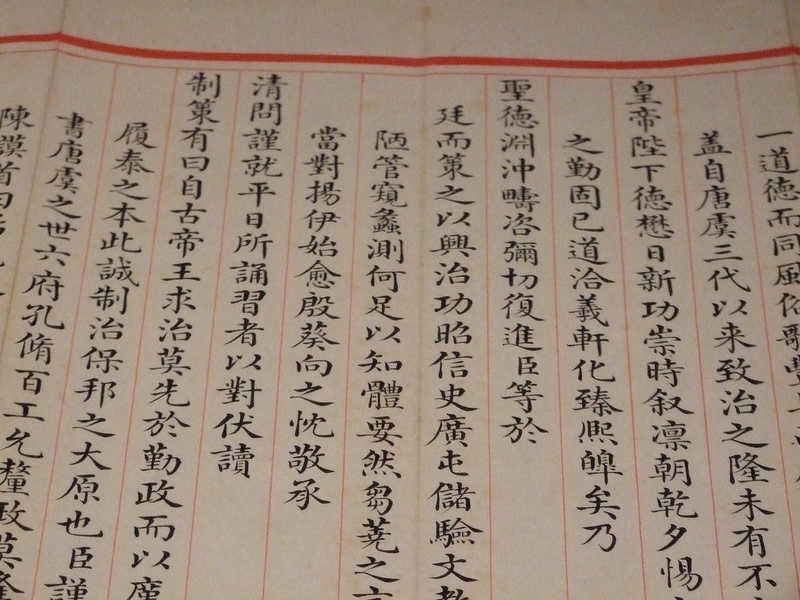 一道德而同風俗歌豐
蓋自唐虞三代以来致治之隆未有不
皇帝陛下德懋日新功崇時叙凛朝乾夕惕
之勤固已道洽羲軒化臻熙皥矣乃
聖德淵沖疇咨彌切復進臣等於
廷而策之以興治功昭信史廣屯儲驗文教
陋管窺蠡測何足以知體要然芻蕘之言
當對揚伊始愈殷葵向之忱敬承
清問謹就平日所誦習者以對伏讀
制策有曰自古帝王求治莫先於勤政而以廑
履泰之本此誠制治保邦之大原也臣謹
書唐虞之世六府孔脩百工允釐政莫隆
陳謨首曰